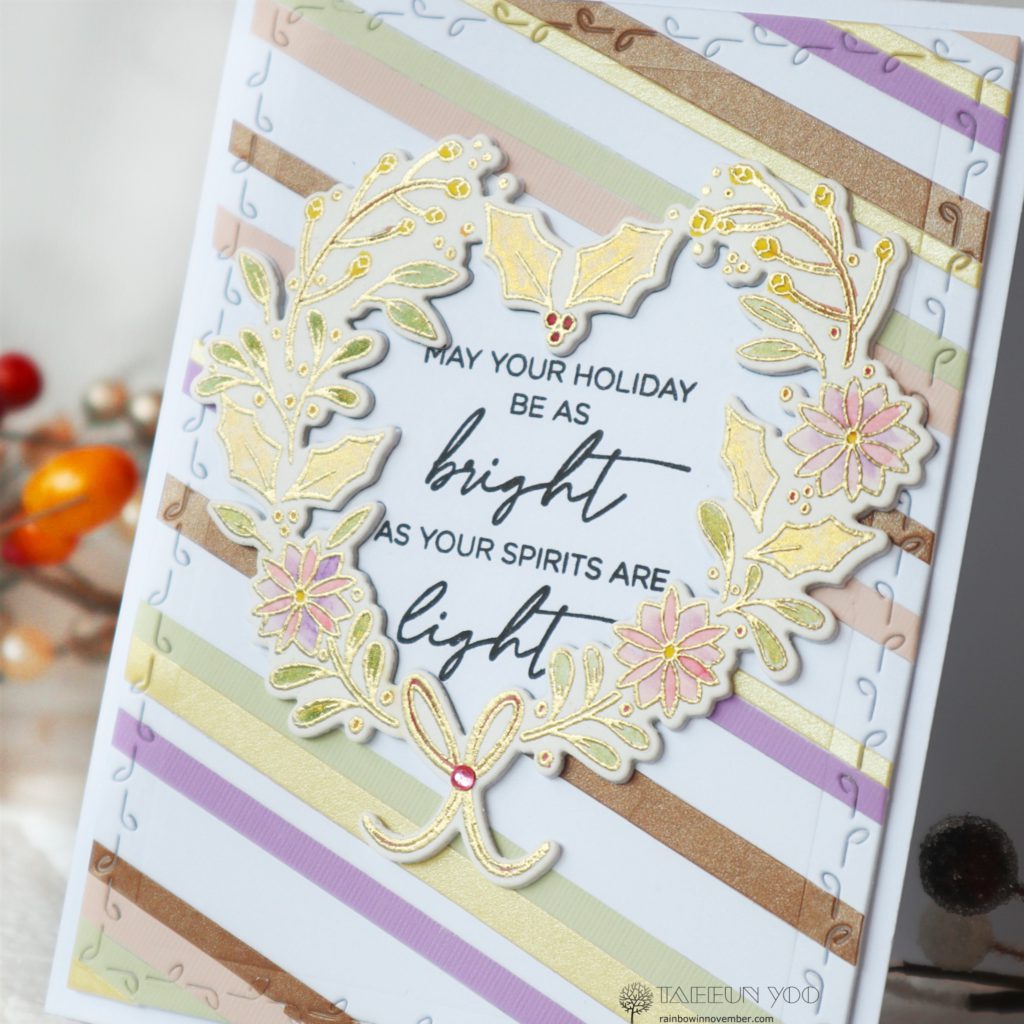 MAY YOUR HOLIDAY
BE AS
bright
AS YOUR SPIRITS ARE
light
TAEEUN YOO
rainbowinnovember.com